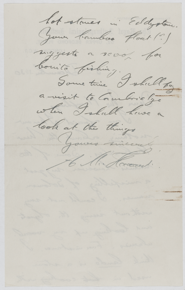 hot stones in Eddystone.
Your bamboo float (?)
suggests a            for
bonito fishing
Some time I shall pay
a visit to Cambridge
when I shall have a
look at the things
Yours sincerely
A. M. Hocart